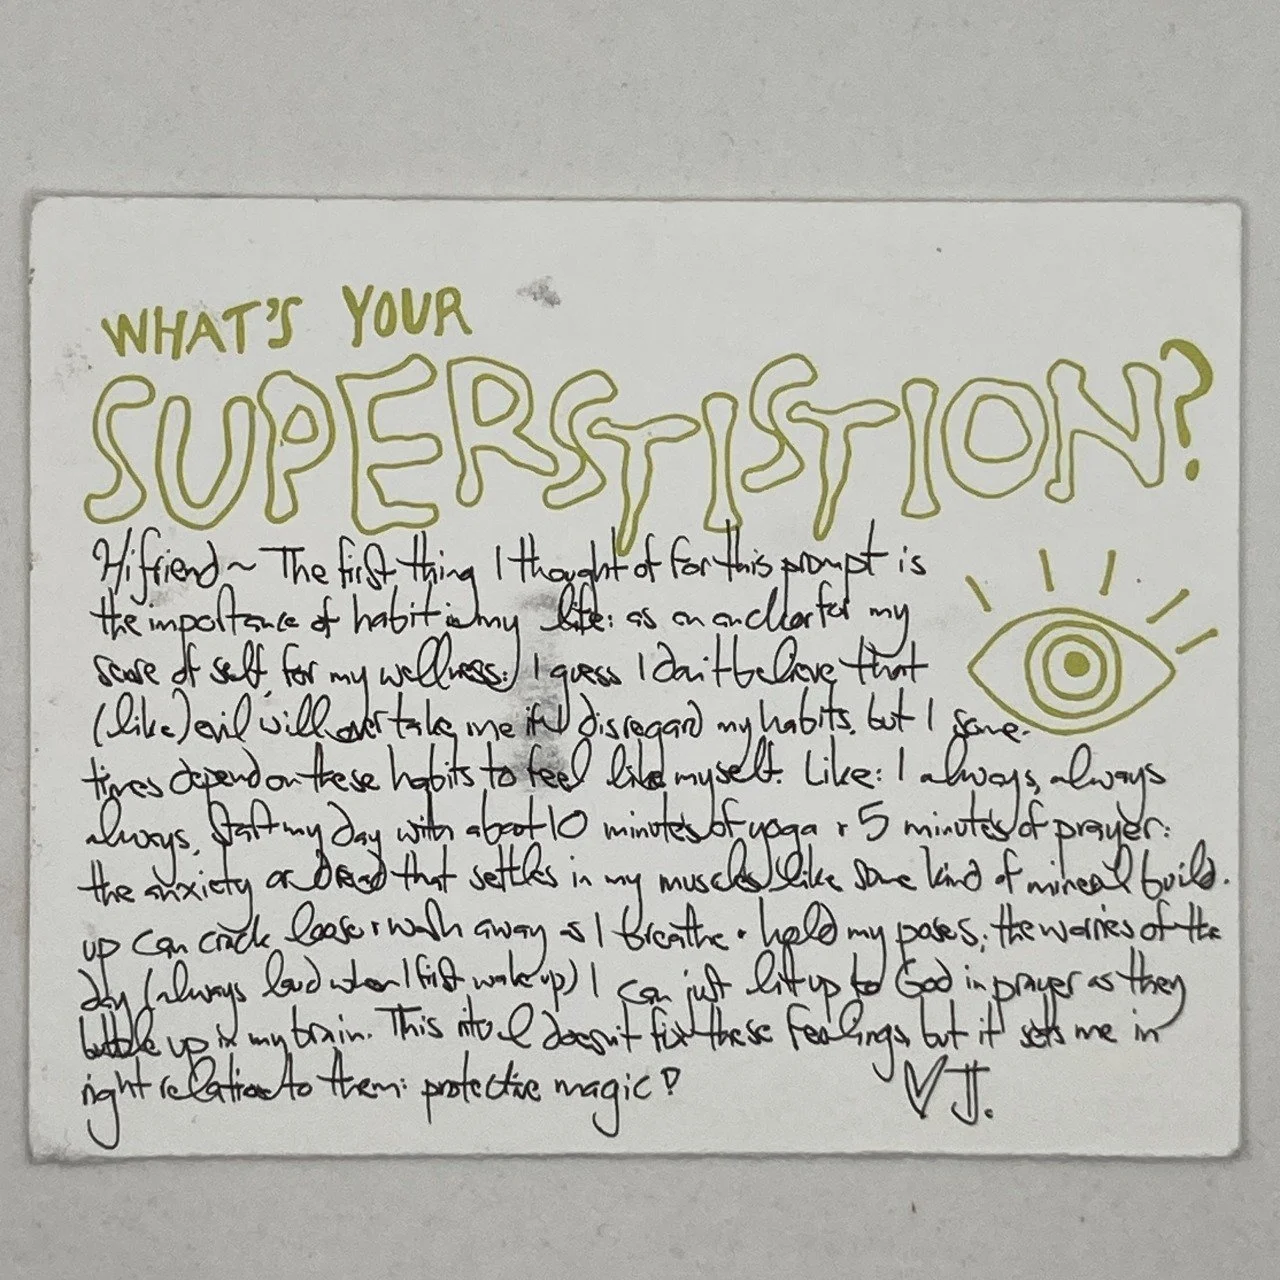 WHAT'S YOUR
SUPERSTISTION?
Hi friend ~ The first thing I thought of for this prompt is
the importance of habit in my life: as an anchor for my
sense of self, for my wellness. I guess I don't believe that
(like) evil will overtake me if I disregard my habits, but I some-
times depend on these habits to feel like myself. Like: I always, always
always, start my day with about 10 minutes of yoga + 5 minutes of prayer:
the anxiety or dread that settles in my muscles like some kind of mineral build-
up can crack loose + wash away as I breathe + hold my poses; the worries of the
day (always loud when I first wake up) I can just lift up to God in prayer as they
bubble up in my brain. This ritual doesn't fix these feelings, but it sets me in
right relation to them: protective magic?
♡ JJ.